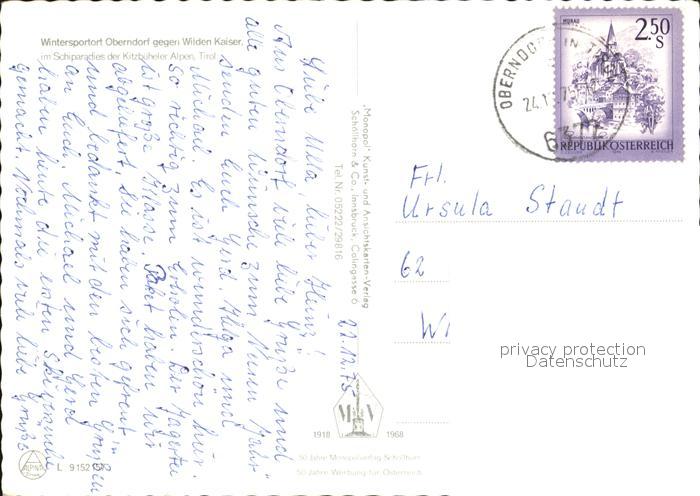 Wintersportort Oberndorf gegen Wilden Kaiser,
im Schiparadies der Kitzbüheler Alpen, Tirol
22.12.75
Liebe Ulla, lieber Heinz!
Aus Oberndorf viele liebe Grüße und
alle guten Wünsche zum Neuen Jahr
senden Euch Gerd, Helga und
Michael. Es ist wunderschön hier.
So richtig zum Erholen. Der
ist große Klasse. Paket haben wir
abgeliefert. Sie haben sich gefreut
und bedankt mit den besten Grüßen
an Euch. Michael und Gerd
haben heute die ersten
gemacht. Nochmals viele liebe Grüße
"Monopol" Kunst- und Ansichtskarten-Verlag
Schöllhorn & Co., Innsbruck, Colingasse 6
Tel. Nr. 05222/29816
1918
1968
50 Jahre Monopolverlag Schöllhorn
50 Jahre Werbung für Österreich
ALPINA
L 9152
OBERNDORF IN
24.12.75
6372
MURAU
2.50
S
REPUBLIK ÖSTERREICH
Frl.
Ursula Staudt
62
Wi
privacy protection
Datenschutz